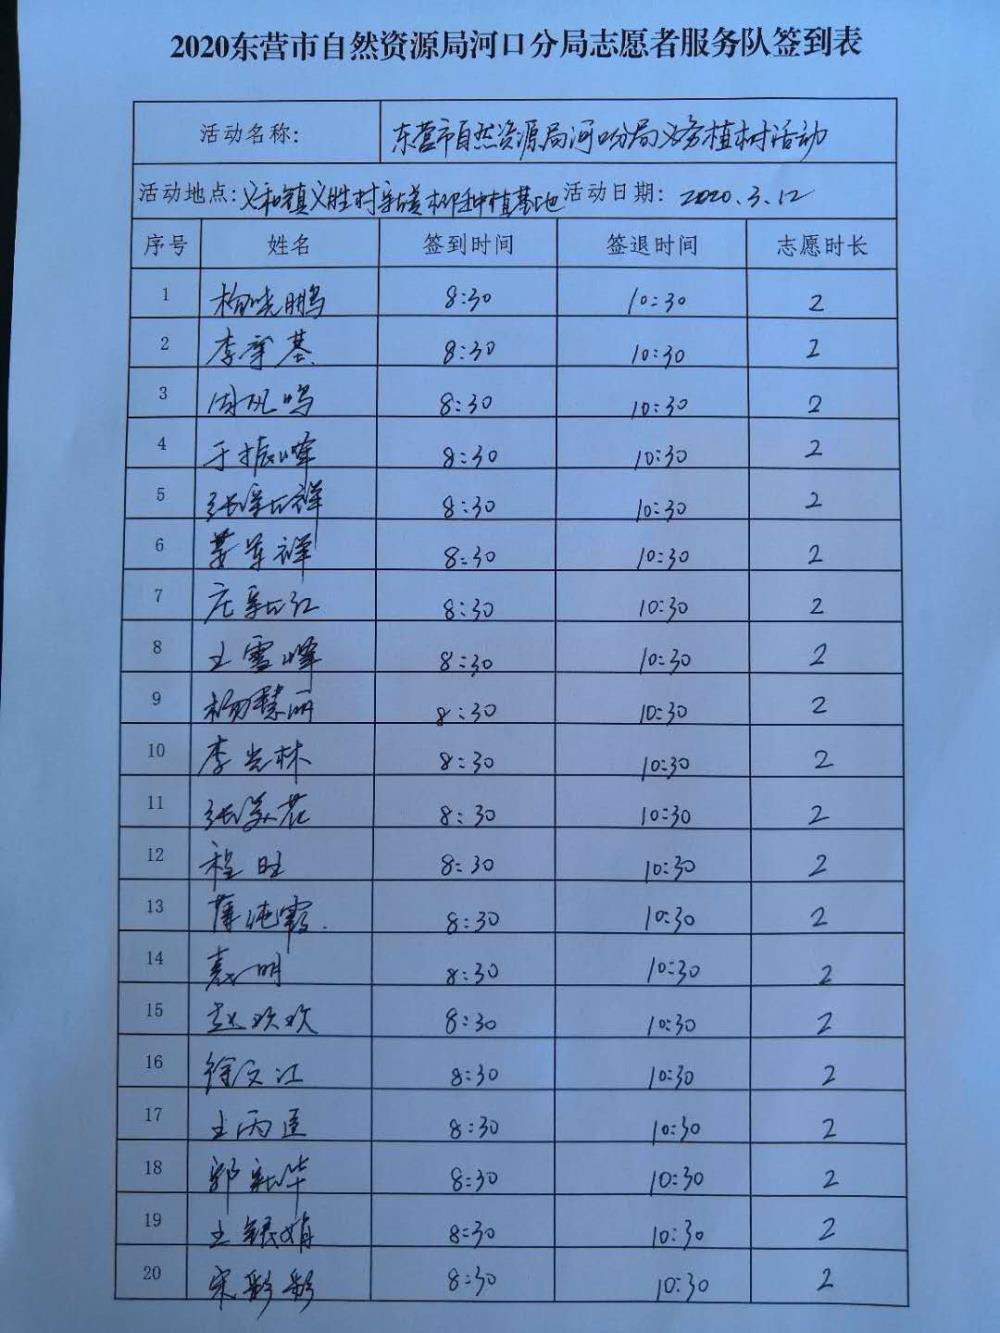 2020东营市自然资源局河口分局志愿者服务队签到表
活动名称: 东营市自然资源局河口分局义务植树活动
活动地点:义和镇义胜村 种植基地 活动日期: 2020.3.12
序号 姓名 签到时间 签退时间 志愿时长
1 晓鹏 8:30 10:30 2
2 李 基 8:30 10:30 2
3 周 鸣 8:30 10:30 2
4 于振峰 8:30 10:30 2
5 张 祥 8:30 10:30 2
6 姜军祥 8:30 10:30 2
7 庄新红 8:30 10:30 2
8 王雪峰 8:30 10:30 2
9 杨慧丽 8:30 10:30 2
10 李光林 8:30 10:30 2
11 张美花 8:30 10:30 2
12 程旺 8:30 10:30 2
13 薄纯霞 8:30 10:30 2
14 袁明 8:30 10:30 2
15 赵欢欢 8:30 10:30 2
16 徐文江 8:30 10:30 2
17 王丙 8:30 10:30 2
18 郭新华 8:30 10:30 2
19 王银娟 8:30 10:30 2
20 宋彩彩 8:30 10:30 2